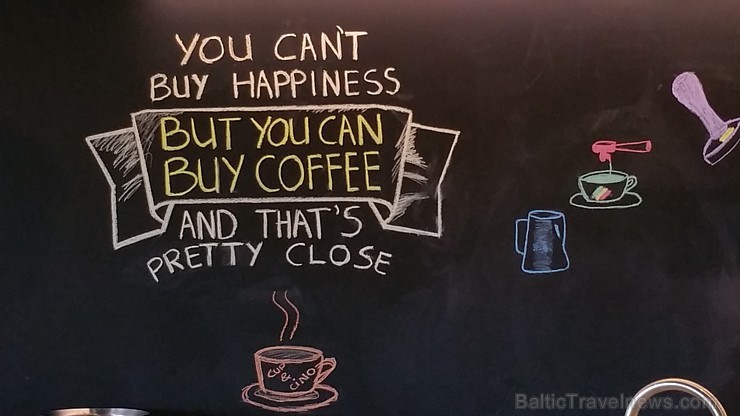 YOU CAN'T
BUY HAPPINESS
BUT YOU CAN
BUY COFFEE
AND THAT'S
PRETTY CLOSE
CUP
&
CINO
BalticTravelnews.com